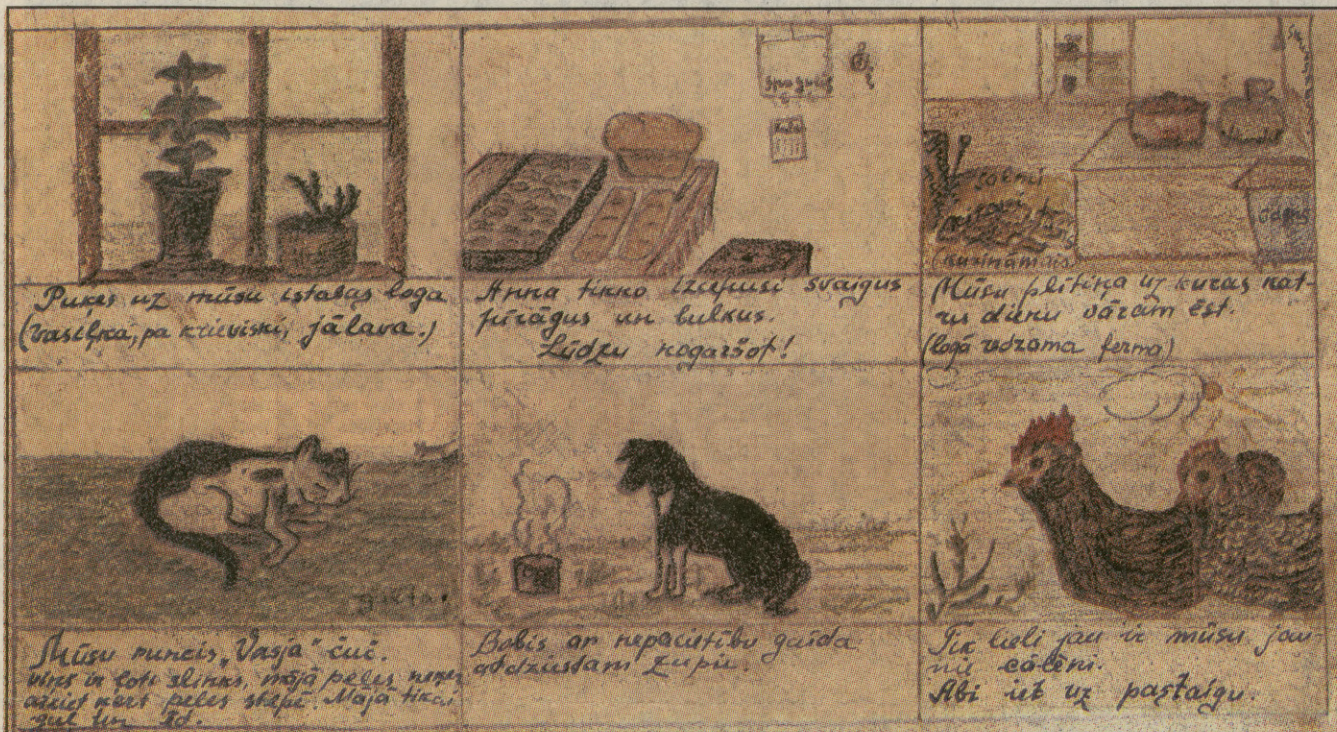 Spogulis
Ūdens
(kurināmais)
Puķes uz mūsu istabas loga
(Vasiļka, pa krieviski, jālava.)
Anna tikko izcepusi svaigus
pīrāgus un bulkus.
Lūdzu nogaršot!
Mūsu plītiņa uz kuras kat-
ru dienu vārām ēst.
(logā redzama ferma)
gulta.
Mūsu runcis, "Vasja" čuč.
viņš ir ļoti slinks, mājā peles
ķert peles stepē. Mājā tikai
guļ un ēd.
Bobis ar nepacietību gaida
atdzūstam zupu.
Tik lieli jau ir mūsu jau-
nie cālēni.
Abi iet uz pastaigu.